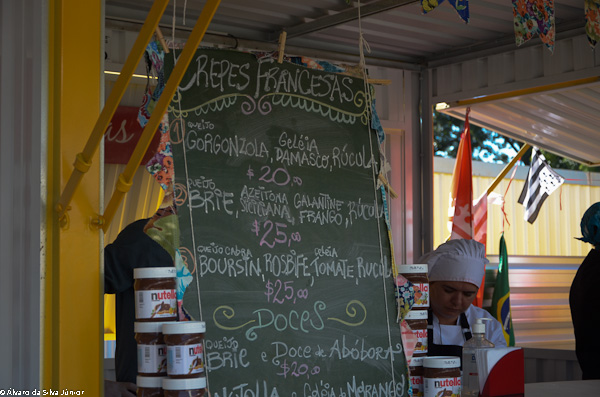 CREPES FRANCESAS
1 QUEIJO
GORGONZOLA, GELÉIA DAMASCO, RÚCULA
$20,00
QUEIJO
BRIE, AZEITONA SICILIANA, GALANTINE FRANGO, RÚCULA
$25,00
QUEIJO CABRA
BOURSIN, ROSBIFE, GELÉIA TOMATE, RUCULA
$25,00
DOCES
QUEIJO
BRIE E DOCE DE ABÓBORA
$20,00
NUTELLA E GELÉIA DE MORANGO
nutella
nutella
nutella
nutella
nutella
© Alvaro da Silva Júnior